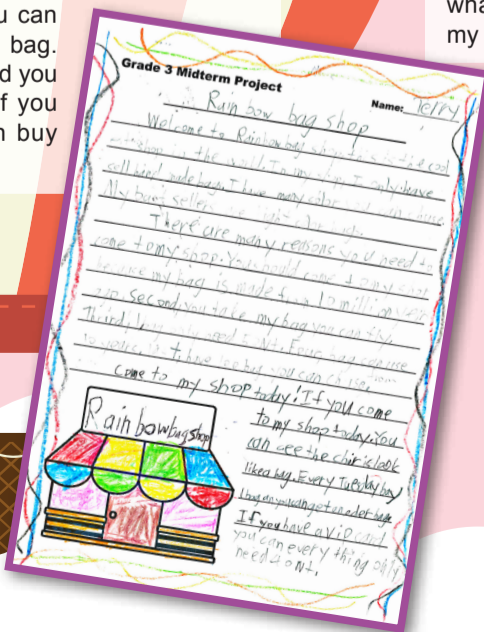 u can
bag.
d you
f you
n buy
wha
my
Grade 3 Midterm Project
Name: Terry
Rainbow bag shop
Welcome to Rainbow bag shop this is the cool
shop in the world. In my shop I only have
sell hand made bag. I have many color
My bag seller light
There are many reasons you need to
come to my shop. You should come to my
because my bag is made from 10 million years
ago. second you take my bag you can fly.
Third! only need 1 NT. bag can use
10 years. I have 100 bag you can
come to my shop today! If you come
to my shop today. You
can see the chir is look
like a bag. Every Tuesday buy
1 bag you can get
If you have a V.I.P card
you can every thing only
need 1 NT.
Rainbow bag shop